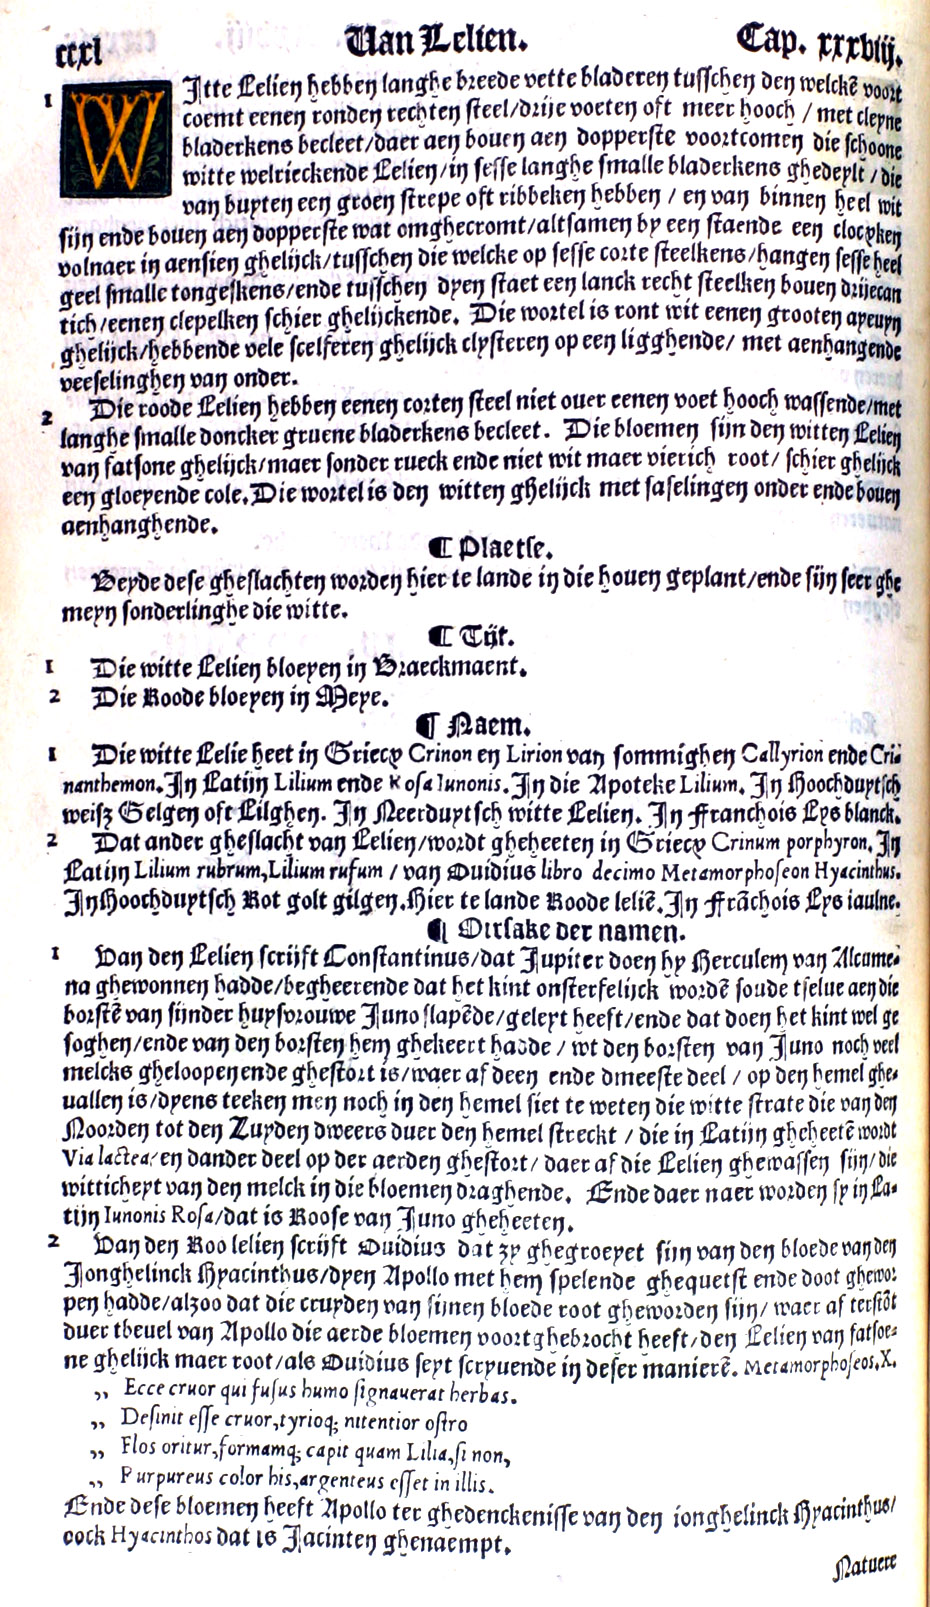 cccxl Van Lelien. Cap. xxxviij.
1 WItte Lelien hebben langhe breede vette bladeren tusschen den welckē voort
coemt eenen ronden rechten steel/drije voeten oft meer hooch / met cleyne
bladerkens becleet/daer aen bouen aen dopperste voortcomen die schoone
witte welrieckende Lelien/in sesse langhe smalle bladerkens ghedeylt / die
van buyten een groen strepe oft ribbeken hebben / en van binnen heel wit
sijn ende bouen aen dopperste wat omghecromt/altsamen by een staende een clocxken
volnaer in aensien ghelijck/tusschen die welcke op sesse corte steelkens/hangen sesse heel
geel smalle tongeskens/ende tusschen dyen staet een lanck recht steelken bouen drijecan
tich/eenen clepelken schier ghelijckende. Die wortel is ront wit eenen grooten ayeuyn
ghelijck/hebbende vele scelferen ghelijck clysteren op een ligghende/ met aenhangende
veeselinghen van onder.
2 Die roode Lelien hebben eenen corten steel niet ouer eenen voet hooch wassende/met
langhe smalle doncker gruene bladerkens becleet. Die bloemen sijn den witten Lelien
van fatsone ghelijck/maer sonder rueck ende niet wit maer vierich root/ schier ghelijck
een gloeyende cole. Die wortel is den witten ghelijck met faselingen onder ende bouen
aenhanghende.
¶ Plaetse.
Beyde dese gheslachten worden hier te lande in die houen geplant/ende sijn seer ghe
meyn sonderlinghe die witte.
¶ Tijt.
1 Die witte Lelien bloeyen in Braeckmaent.
2 Die Roode bloeyen in Meye.
¶ Naem.
1 Die witte Lelie heet in Griecx Crinon en Lirion van sommighen Callyrion ende Cri-
nanthemon. In Latijn Lilium ende Rosa Iunonis. In die Apoteke Lilium. In Hoochduytsch
weisz Gelgen oft Lilghen. In Neerduytsch witte Lelien. In Franchois Lys blanck.
2 Dat ander gheslacht van Lelien/wordt gheheeten in Griecx Crinum porphyron. In
Latijn Lilium rubrum, Lilium rufum / van Ouidius libro decimo Metamorphoseon Hyacinthus.
In Hoochduytsch Rot golt gilgen. Hier te lande Roode leliē. In Frāchois Lys iaulne.
¶ Oirsake der namen.
1 Van den Lelien scrijft Constantinus/dat Jupiter doen hy Herculem van Alcume-
na ghewonnen hadde/begheerende dat het kint onsterfelijck wordē soude tselue aen die
borstē van sijnder huysvrouwe Juno slapēde/geleyt heeft/ende dat doen het kint wel ge
soghen/ende van den borsten hem ghekeert hadde / wt den borsten van Juno noch veel
melcks gheloopen ende ghestort is/waer af deen ende dmeeste deel / op den hemel ghe-
uallen is/dyens teeken men noch in den hemel siet te weten die witte strate die van den
Noorden tot den Zuyden dweers duer den hemel streckt / die in Latijn gheheetē wordt
Via lactea/en dander deel op der aerden ghestort/ daer af die Lelien ghewassen sijn/die
witticheyt van den melck in die bloemen draghende. Ende daer naer worden sy in La-
tijn Iunonis Rosa/dat is Roose van Juno gheheeten.
2 Van den Roo lelien scrijft Ouidius dat zy ghegroeyet sijn van den bloede van den
Jonghelinck Hyacinthus/dyen Apollo met hem spelende ghequetst ende doot ghewor
pen hadde/alzoo dat die cruyden van sijnen bloede root gheworden sijn/ waer af terstōt
duer tbeuel van Apollo die aerde bloemen voortghebrocht heeft/den Lelien van fatsoe-
ne ghelijck maer root/als Ouidius seyt scryuende in deser manierē. Metamorphoseos. X.
,, Ecce cruor qui fusus humo signauerat herbas.
,, Desinit esse cruor, tyrioq; nitentior ostro
,, Flos oritur, formamq; capit quam Lilia, si non,
,, Purpureus color his, argenteus esset in illis.
Ende dese bloemen heeft Apollo ter ghedenckenisse van den ionghelinck Hyacinthus/
oock Hyacinthos dat is Jacinten ghenaempt.
Natuere